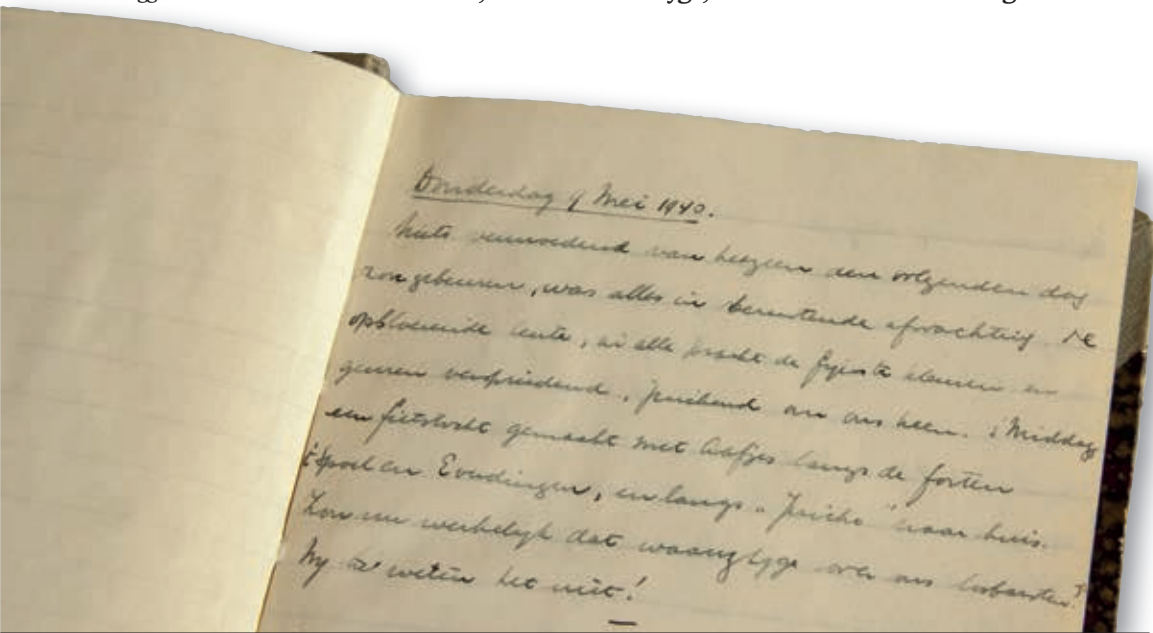 Donderdag 9 Mei 1940.
Niets vermoedend van hetgeen den volgenden dag
zou gebeuren, was alles in berustende afwachting. De
opbloeiende lente, in alle pracht de fijnste kleuren en
geuren verspreidend, juichend om ons heen. 's Middags
een fietstocht gemaakt met Aafjes langs de forten
't Spoel en Everdingen, en langs "Jericho" naar huis.
Zou nu werkelyk dat over ons losbarsten?
Wy weten het niet!